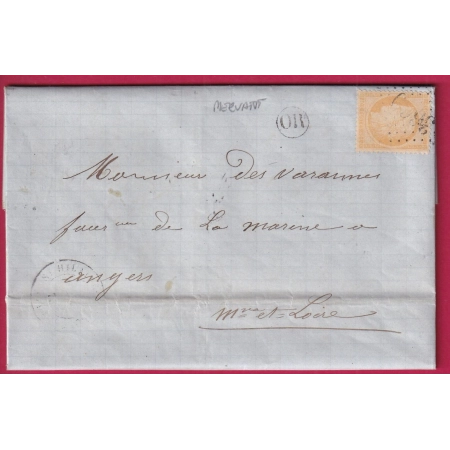 MERVANT
OR
Monsieur des varannes
four eur de La marine a
angers
Mne et=Loire